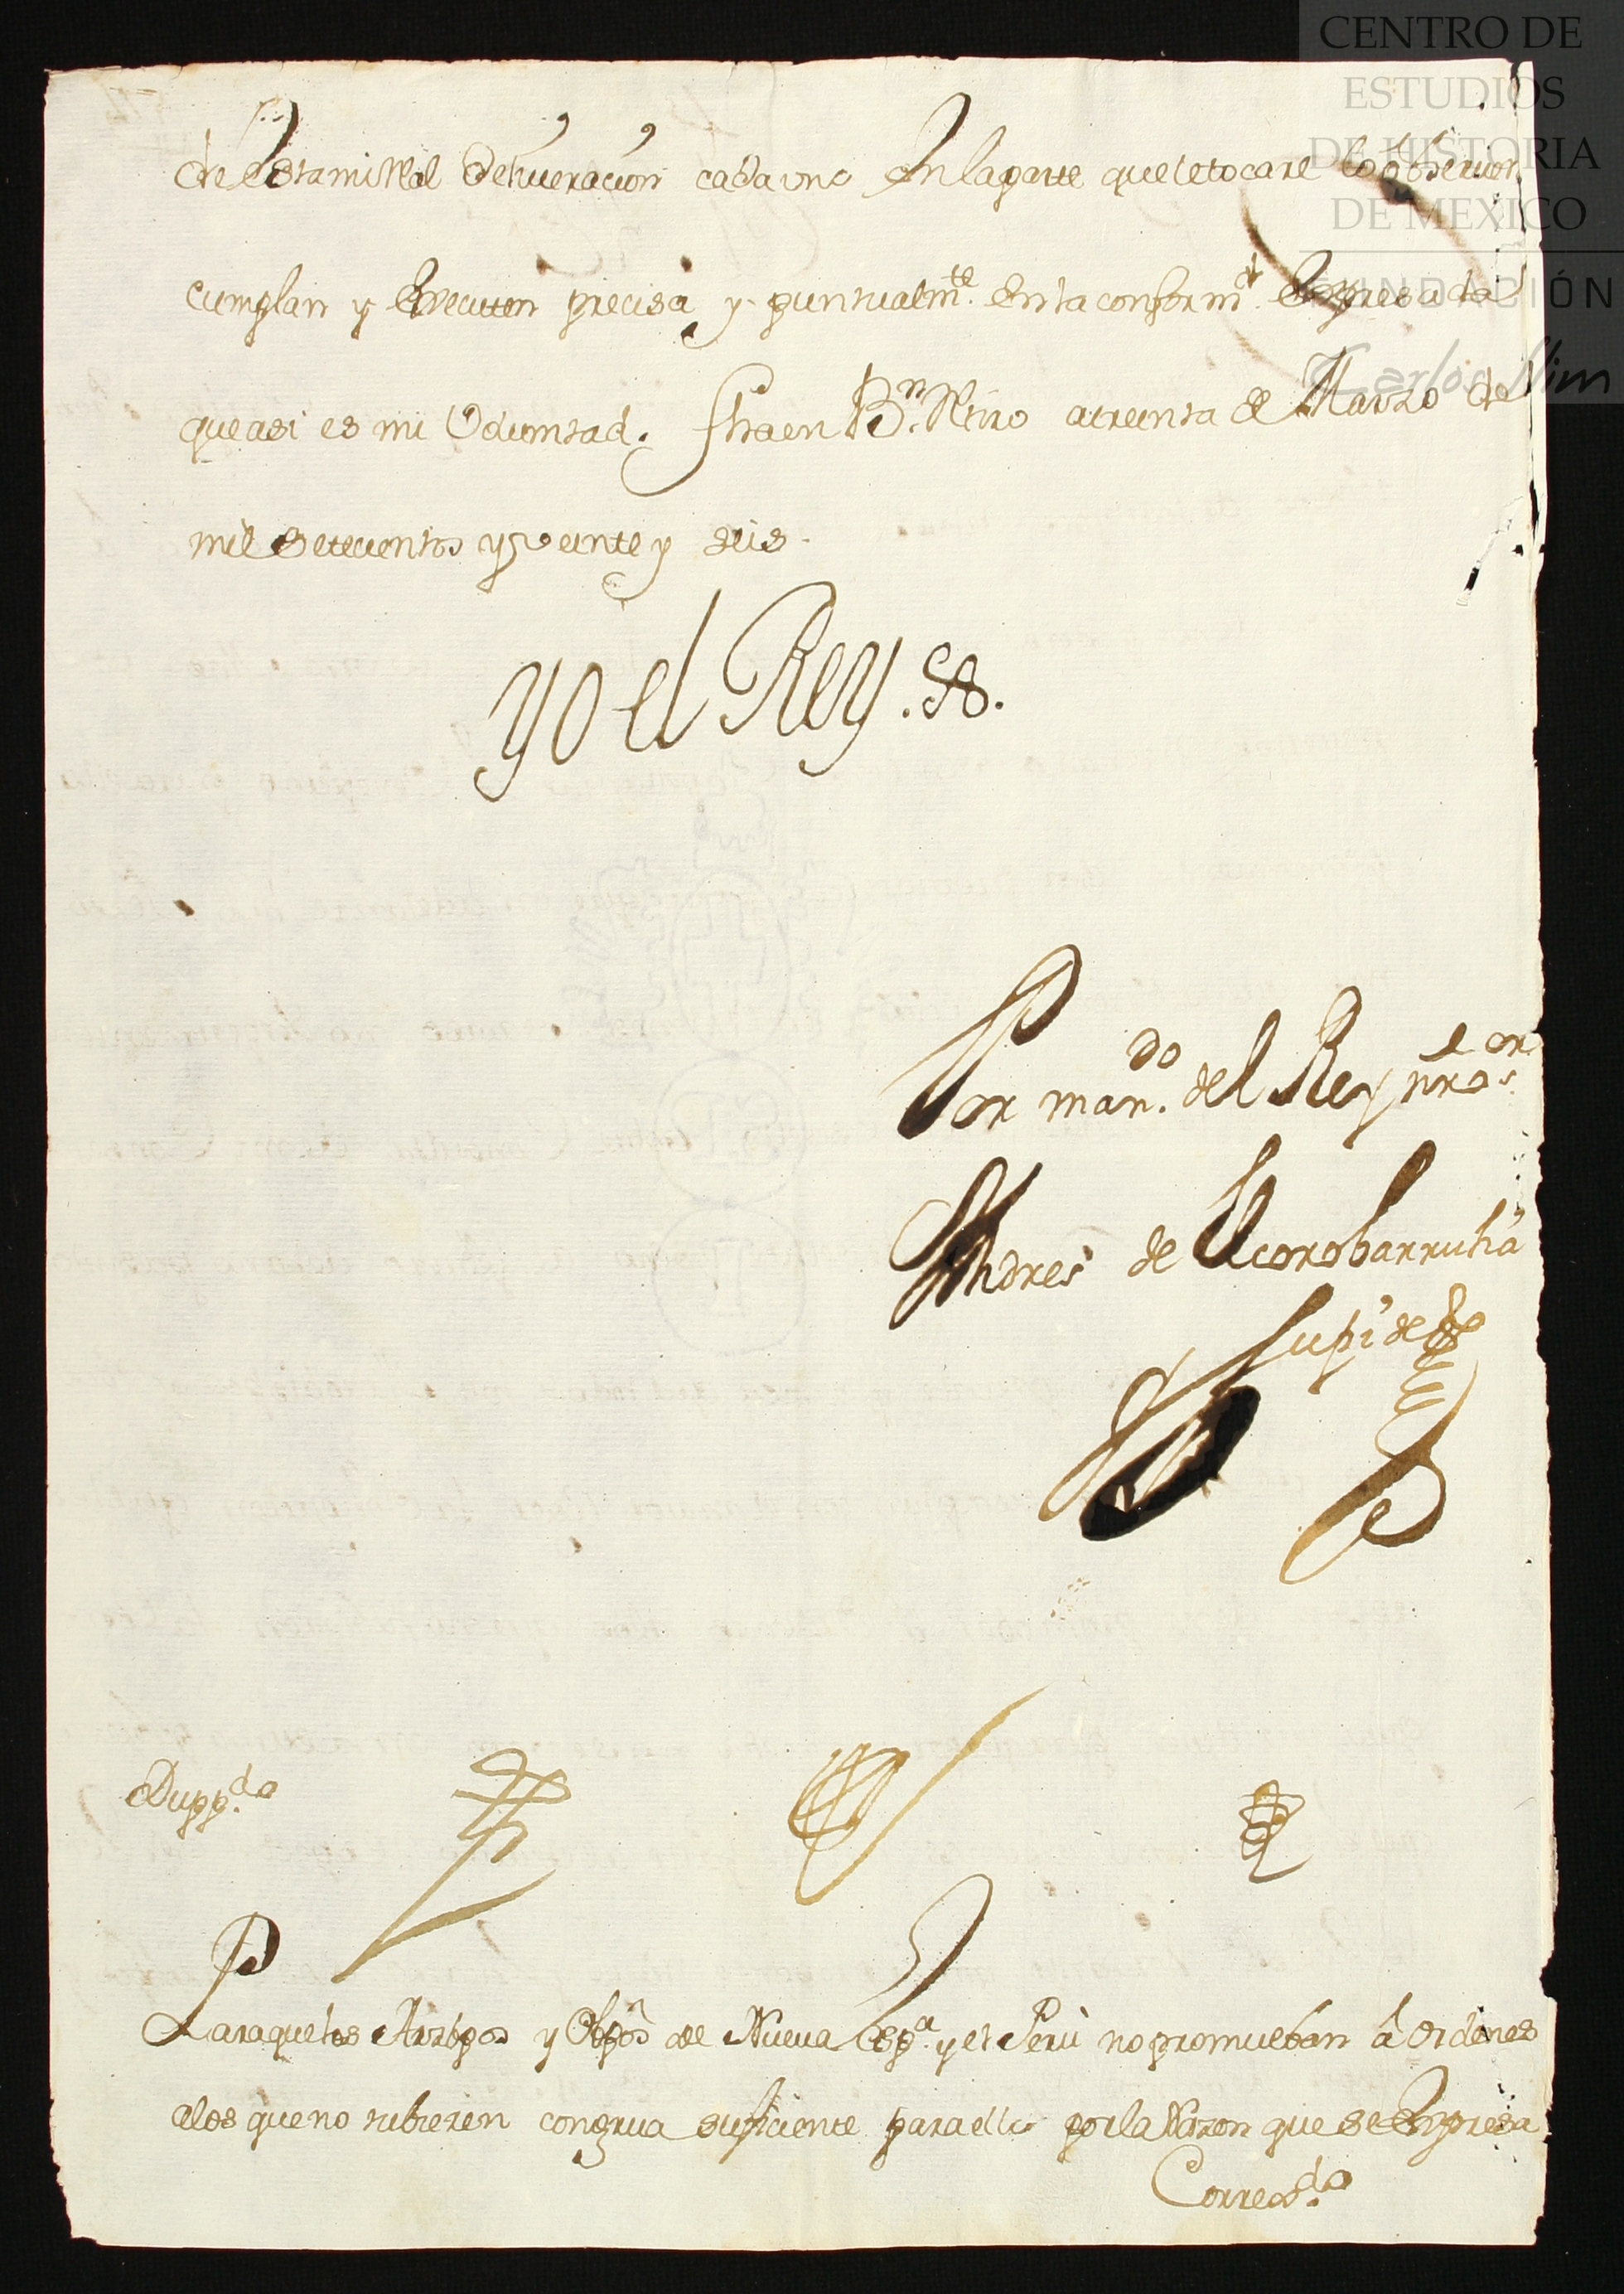 CENTRO DE
ESTUDIOS
DE HISTORIA
DE MEXICO
FUNDACIÓN
Carlos Slim
de esta mi Real Deliueracion cada uno En la parte que le tocare lo obseruen
cumplan y Executen precisa y puntualm.te En la conform.d Expresada
que asi es mi Voluntad. fha en B.n Retiro a treinta de Marzo de
mil setecientos y veinte y seis.
yo el Rey.
Por man.do del Rey nro s.or
Andres de Elcorobarrutia
Supi de
Dupp.do
Para que los Arzbpos y Obpos de Nueua Esp.a y el Perù no promueban â ordenes
a los que no tubieren congrua suficiente para ello por la Razon que se Expresa
Correx.da